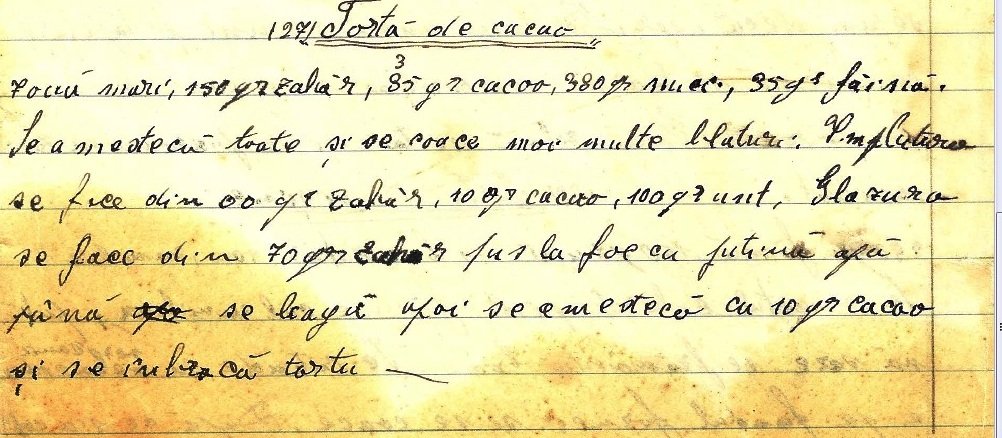 127) Tortă de cacao
7 ouă mari, 150 gr zahăr, 35 gr cacao, 380 gr nuci, 35 gr făină.
Se amestecă toate și se coace mai multe blaturi. Umplutura
se face din 00 gr zahăr, 10 gr cacao, 100 gr unt, Glazura
se face din 70 gr zahăr pus la foc cu puțină apă
până se leagă apoi se amestecă cu 10 gr cacao
și se îmbracă tortu